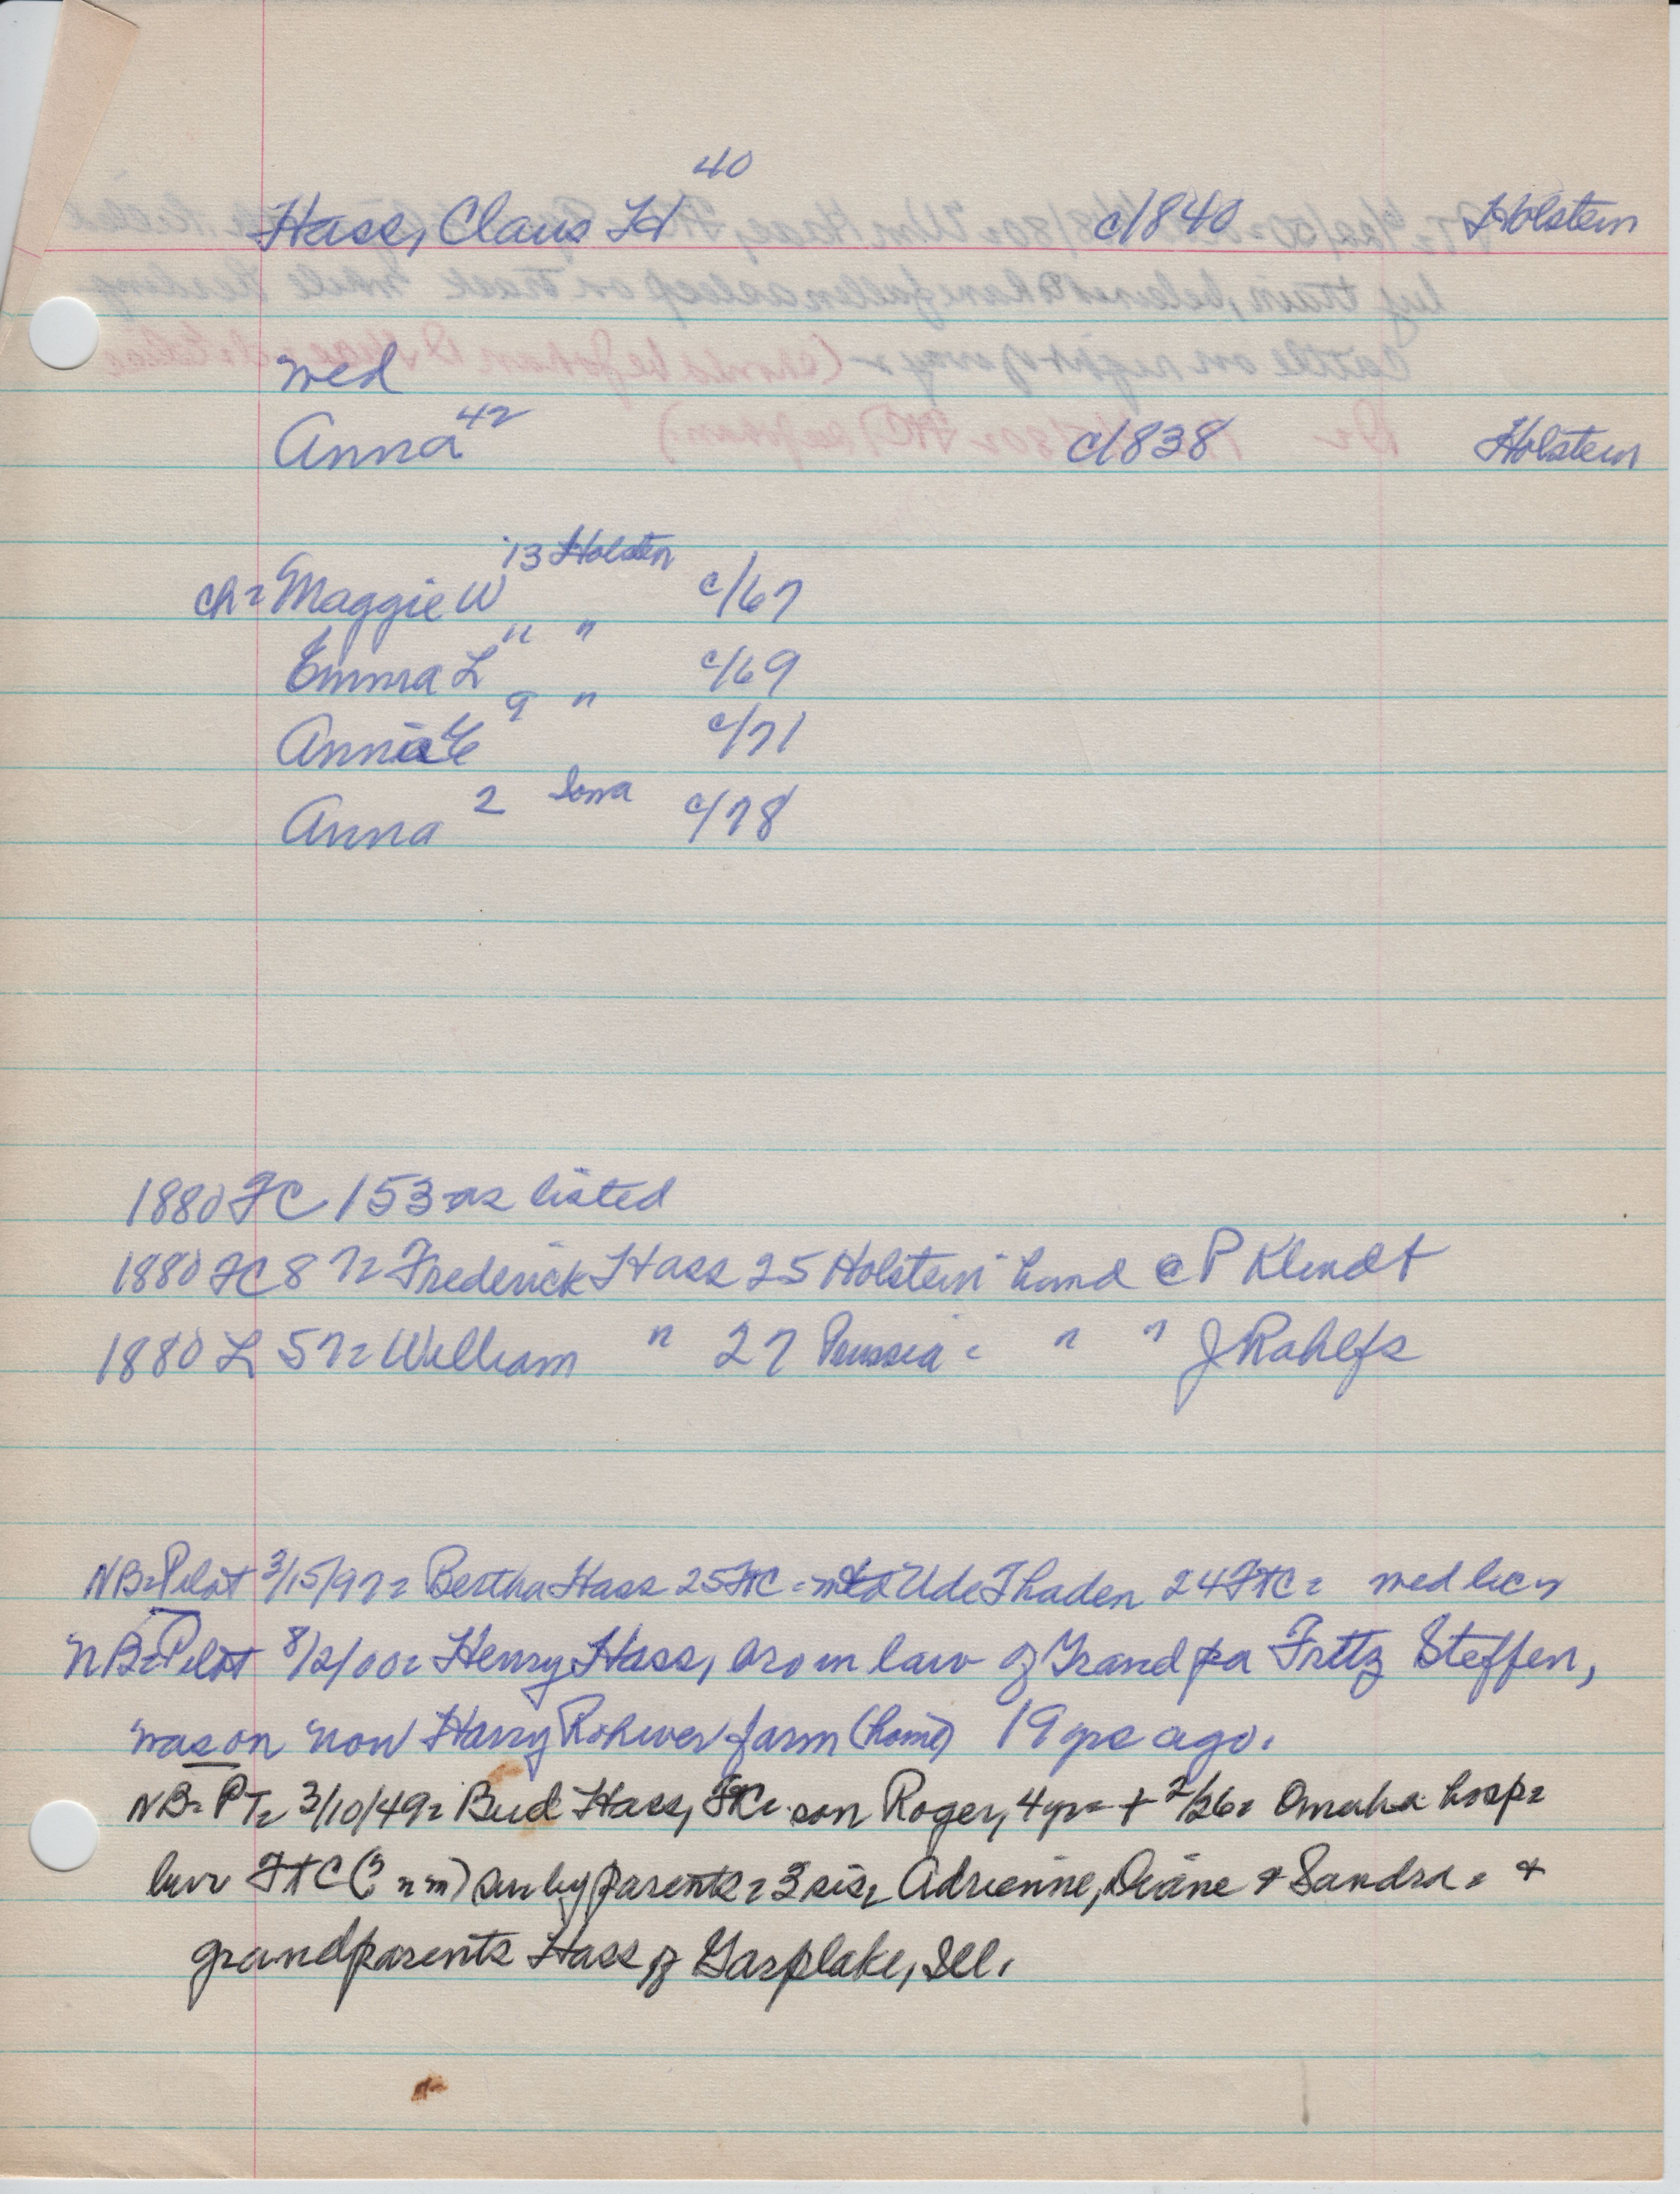 40
Hass, Claus H c/1840 Holstein
wed
Anna 42 c/1838 Holstein
13 Holsten
ch= Maggie W c/67
" "
Emma L 11 c/69
9 "
Annie E c/71
2 Iowa
Anna c/78
1880 FC 153 as listed
1880 FC 87= Frederick Hass 25 Holstein hand @ P Klindt
1880 L 57= William " 27 Prussia = " " J Rahlfs
NB=Pilot 3/15/97= Bertha Hass 25 FtC = Ude Thaden 24 FtC = wed lic
NB=Pilot 8/2/00= Henry Hass, bro in law of Grandpa Fritz Steffen,
was on now Harry Rohwer farm (home) 19 yrs ago.
NB= PT= 3/10/49= Bud Hass, FtC= son Roger, 4 yrs + 2/26= Omaha hosp=
bur FtC (? nm) sur by parents = 3 sis= Adrienne, Diane & Sandra = &
grandparents Hass of Grasplake, Ill.